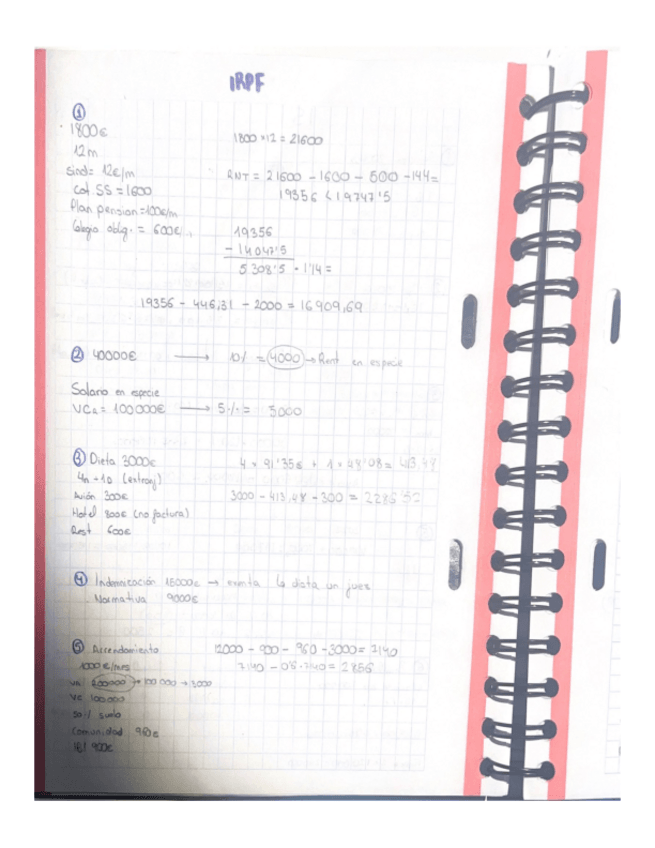 IRPF
①
1800€
12m
sind= 12€/m
cot SS = 1600
Plan pension=100€/m
Colegio oblig. = 600€
1800 × 12 = 21600
RNT = 21600 - 1600 - 500 - 144 =
19356 < 19747'5
19356
- 14047'5
5308'5 · 1'14 =
19356 - 446,31 - 2000 = 16909,69
② 40000€ → 10% = 4000 → Rent en especie
Salario en especie
VCa = 100000€ → 5% = 3000
③ Dieta 3000€
4n - 1D (extranj)
Avión 300€
Hotel 800€ (no factura)
Rest 600€
4 × 91'35€ + 1 × 48'08 = 413.48
3000 - 413.48 - 300 = 2286'52
④ Indemnización 15000€ → exenta la dicta un juez
Normativa 9000€
⑤ Arrendamiento
1000€/mes
VA 200000 → 100000 → 3000
VC 100000
50% suelo
Comunidad 960€
IBI 900€
12000 - 900 - 960 - 3000 = 7140
7140 - 0'6·7140 = 2856